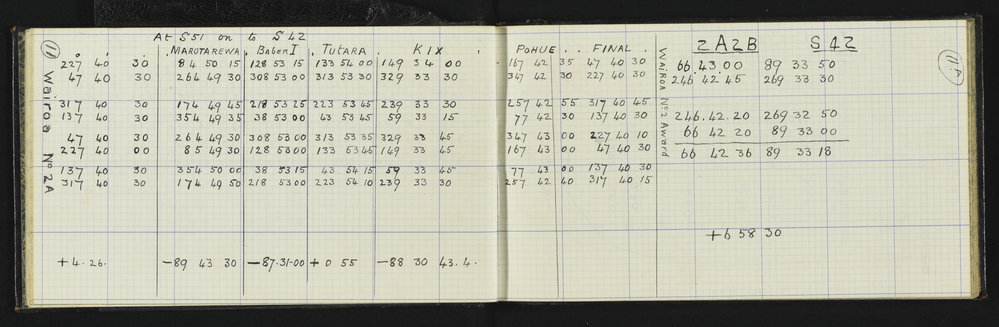 At S51 on to S42
11
° ' . MARUTAREWA . BABER I . TUTARA . K I X .
227 40 30 84 50 15 128 53 15 133 54 00 149 34 00
47 40 30 264 49 30 308 53 00 313 53 30 329 33 30
317 40 30 174 49 45 218 53 25 223 53 45 239 33 30
137 40 30 354 49 35 38 53 00 43 53 45 59 33 15
47 40 30 264 49 30 308 53 00 313 53 35 329 33 45
227 40 00 85 49 30 128 53 00 133 53 45 149 33 45
137 40 30 354 50 00 38 53 15 43 54 15 59 33 45
317 40 30 174 49 50 218 53 00 223 54 10 239 33 30
+ 4. 26. - 89 43 30 - 87.31.00 + 0 55 - 88 30 43.4.
Wairoa No 2A
POHUE . . FINAL .
167 42 35 47 40 30
347 42 30 227 40 30
257 42 55 317 40 45
77 42 30 137 40 30
347 43 00 227 40 10
167 43 00 47 40 30
77 43 00 137 40 30
257 42 40 317 40 15
WAIROA No 2 Award
2A2B S42
11A
66. 43. 00 89 33 50
246. 42. 45 269 33 30
246. 42. 20 269 32 50
66 42 20 89 33 00
66 42 36 89 33 18
+ 6 58 30